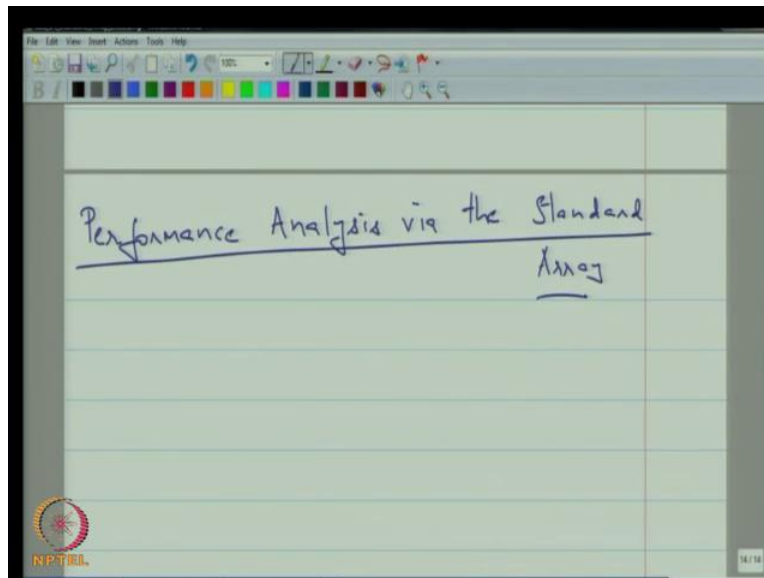 File Edit View Insert Actions Tools Help
100%
B I
Performance Analysis via the Standard
Array
NPTEL
14/14